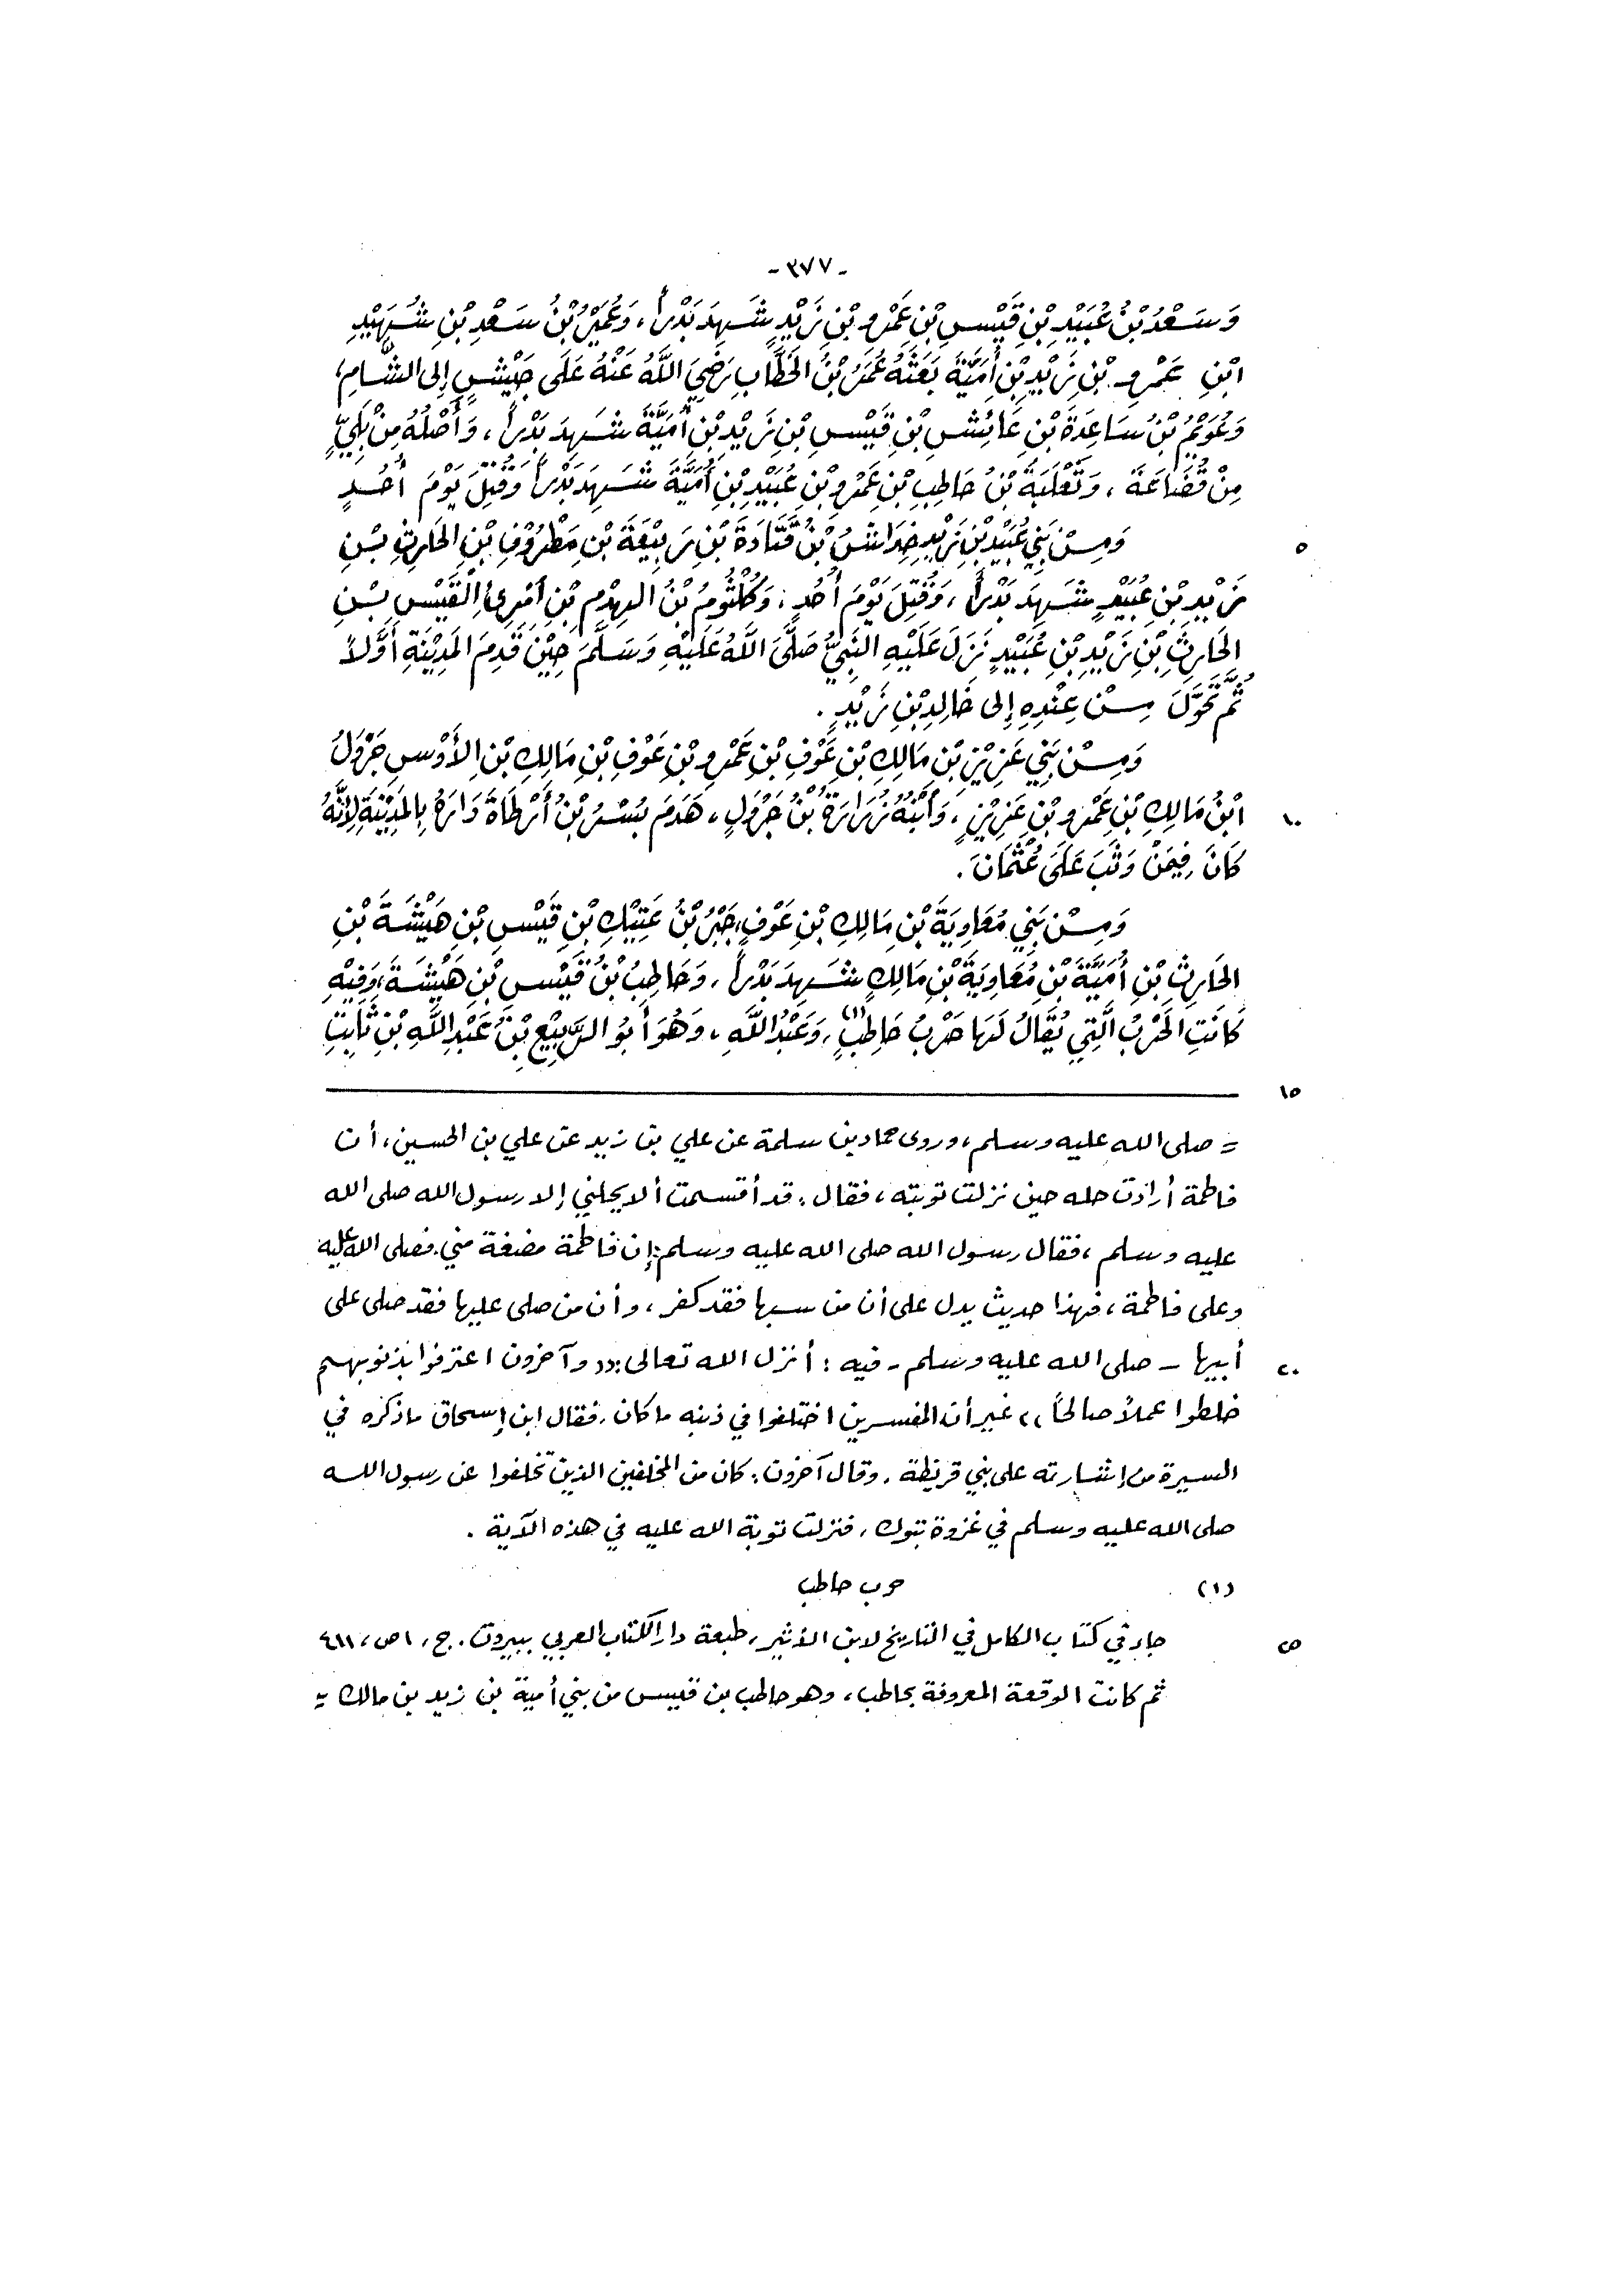 -٣٧٧-
وَسَعْدُ بْنُ عُبَيْدِ بْنِ قَيْسِ بْنِ عَمْرِو بْنِ زَيْدٍ شَهِدَ بَدْراً، وَعُمَيْرُ بْنُ سَعْدِ بْنِ شُهَيْدِ
ابْنِ عَمْرِو بْنِ زَيْدِ بْنِ أُمَيَّةَ بَعَثَهُ عُمَرُ بْنُ الخَطَّابِ رَضِيَ اللَّهُ عَنْهُ عَلَى جَيْشٍ إِلى الشَّامِ،
وَعُوَيْمُ بْنُ سَاعِدَةَ بْنِ عَائِشِ بْنِ قَيْسِ بْنِ زَيْدِ بْنِ أُمَيَّةَ شَهِدَ بَدْراً، وَأَصْلُهُ مِنْ بَلِيٍّ
مِنْ قُضَاعَةَ، وَثَعْلَبَةُ بْنُ حَاطِبِ بْنِ عَمْرِو بْنِ عُبَيْدِ بْنِ أُمَيَّةَ شَهِدَ بَدْراً وَقُتِلَ يَوْمَ أُحُدٍ
٥ وَمِنْ بَنِي عُبَيْدِ بْنِ زَيْدٍ خِدَاشُ بْنُ قَتَادَةَ بْنِ رَبِيْعَةَ بْنِ مَطْرُوْفِ بْنِ الحَارِثِ بْنِ
زَيْدِ بْنِ عُبَيْدٍ شَهِدَ بَدْراً، وَقُتِلَ يَوْمَ أُحُدٍ، وَكُلْثُومُ بْنُ الهِدْمِ بْنِ امْرِئِ القَيْسِ بْنِ
الحَارِثِ بْنِ زَيْدِ بْنِ عُبَيْدٍ نَزَلَ عَلَيْهِ النَّبِيُّ صَلَّى اللَّهُ عَلَيْهِ وَسَلَّمَ حِيْنَ قَدِمَ المَدِيْنَةِ أَوَّلاً
ثُمَّ تَحَوَّلَ مِنْ عِنْدِهِ إِلى خَالِدِ بْنِ زَيْدٍ.
وَمِنْ بَنِي عَزِيْزِ بْنِ مَالِكِ بْنِ عَوْفِ بْنِ عَمْرِو بْنِ عَوْفِ بْنِ مَالِكِ بْنِ الأَوْسِ جَرْوَلُ
١٠ ابْنُ مَالِكِ بْنِ عَمْرِو بْنِ عَزِيْزٍ، وَابْنُهُ زُرَارَةُ بْنُ جَرْوَلٍ، هَدَمَ بُسْرُ بْنُ أَرْطَاةَ دَارَهُ بِالمَدِيْنَةِ لِأَنَّهُ
كَانَ فِيمَنْ وَثَبَ عَلَى عُثْمَانَ.
وَمِنْ بَنِي مُعَاوِيَةَ بْنِ مَالِكِ بْنِ عَوْفٍ، جَبْرُ بْنُ عَتِيْكِ بْنِ قَيْسِ بْنِ هَيْشَةَ بْنِ
الحَارِثِ بْنِ أُمَيَّةَ بْنِ مُعَاوِيَةَ بْنِ مَالِكٍ شَهِدَ بَدْراً، وَحَاطِبُ بْنُ قَيْسِ بْنِ هَيْشَةَ، وَفِيْهِ
كَانَتِ الحَرْبُ الَّتِي يُقَالُ لَهَا حَرْبُ حَاطِبٍ(١)، وَعَبْدُ اللَّهِ، وَهُوَ أَبُو الرَّبِيْعِ بْنُ عَبْدِ اللَّهِ بْنِ ثَابِتِ
١٥
= صلى الله عليه وسلم، وروى حماد بن سلمة عن علي بن زيد عن علي بن الحسين، أن
فاطمة أرادت حله حين نزلت توبته، فقال: قد أقسمت ألا يحلني إلا رسول الله صلى الله
عليه وسلم، فقال رسول الله صلى الله عليه وسلم: إن فاطمة مضغة مني. فصلى الله عليه
وعلى فاطمة، فهذا حديث يدل على أن من سبها فقد كفر، وأن من صلى عليها فقد صلى على
٢٠ أبيها - صلى الله عليه وسلم - فيه: أنزل الله تعالى: (( وآخرون اعترفوا بذنوبهم
خلطوا عملاً صالحاً )) غير أن المفسرين اختلفوا في ذنبه ما كان، فقال ابن إسحاق ما ذكره في
السيرة من إشارته على بني قريظة، وقال آخرون: كان من المخلفين الذين تخلفوا عن رسول الله
صلى الله عليه وسلم في غزوة تبوك، فنزلت توبة الله عليه في هذه الآية.
(١) حرب حاطب
٢٥ جاء في كتاب الكامل في التاريخ لابن الأثير، طبعة دار الكتاب العربي ببيروت. ج، ١ ص، ٤١١
ثم كانت الوقعة المعروفة بحاطب، وهو حاطب بن قيس من بني أمية بن زيد بن مالك =